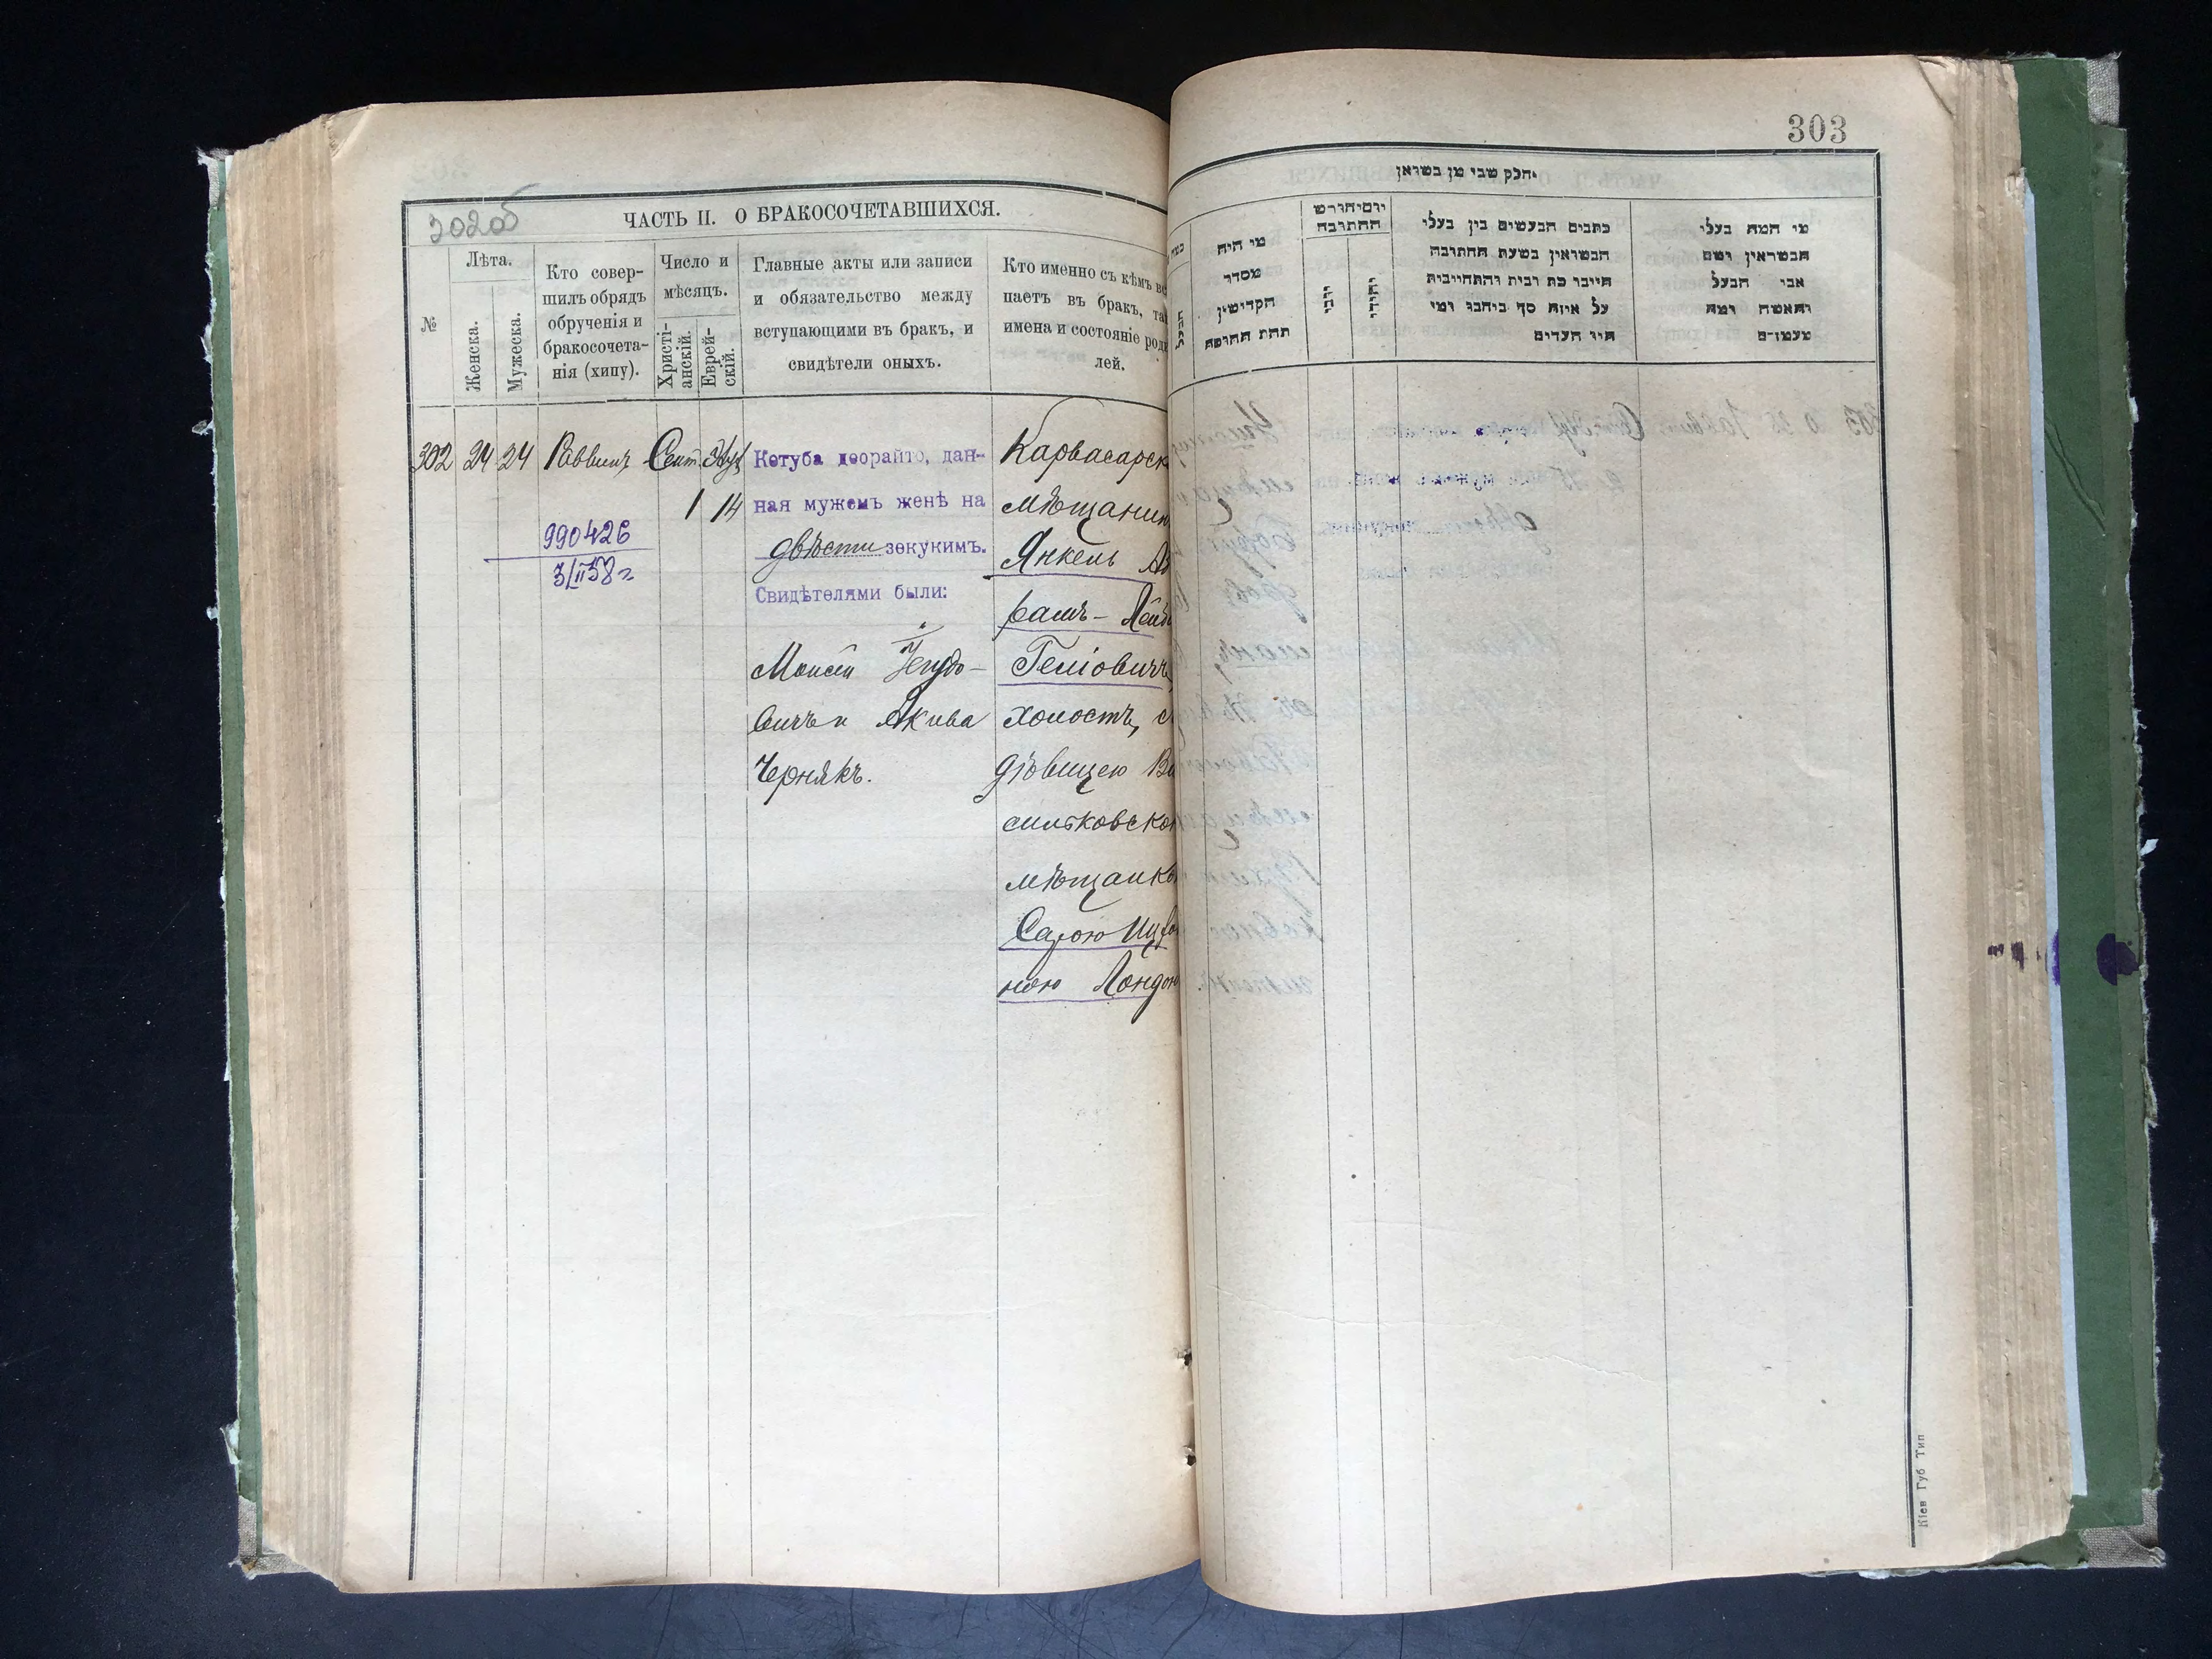 302об
ЧАСТЬ II. О БРАКОСОЧЕТАВШИХСЯ.
№
Лѣта.
Женска.
Мужеска.
Кто совер-
шилъ обрядъ
обрученія и
бракосочета-
нія (хипу).
Число и
мѣсяцъ.
Христі-
анскій.
Еврей-
скій.
Главные акты или записи
и обязательство между
вступающими въ бракъ, и
свидѣтели оныхъ.
Кто именно съ кѣмъ вс
паетъ въ бракъ, та
имена и состояніе роди
лей.
302 24 24 Раввинъ Сент.
1 14
990426
3/II 58 г
Кетуба деорайто, дан-
ная мужемъ женѣ на
двѣсти зекукимъ.
Свидѣтелями были:
Моисей
вичъ и Акива
Чернякъ.
Карвасарск
мѣщанин
Янкель Аб
рамъ-Лейб
Геліовичъ,
холостъ, с
дѣвицею Ва
сильковскою
мѣщанкою
Сарою Иц
ною Лондон
303
חלק שני מן נשואין
מי היה
מסדר
הקדושין
תחת החופה
יום וחודש
החתונה
יוני
יהודי
כתבים הנעשים בין בעלי
הנשואין בשעת החתונה
חייבו כח רבית והתחייבות
על איזה סך ביניהם ומי
היו העדים
מי המה בעלי
הנשואין ושם
אבי הבעל
והאשה ומה
מעמדם
Кіев Губ Тип